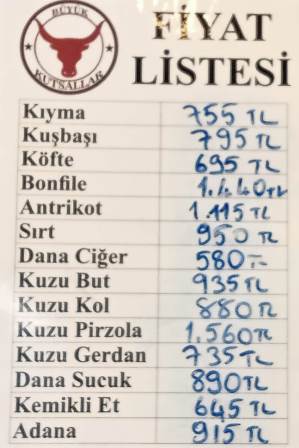 BÜYÜK
KUTSALLAR
FİYAT
LİSTESİ
Kıyma 755 TL
Kuşbaşı 795 TL
Köfte 695 TL
Bonfile 1.440 TL
Antrikot 1.115 TL
Sırt 950 TL
Dana Ciğer 580.-
Kuzu But 935 TL
Kuzu Kol 880 TL
Kuzu Pirzola 1.560 TL
Kuzu Gerdan 735 TL
Dana Sucuk 890 TL
Kemikli Et 645 TL
Adana 915 TL